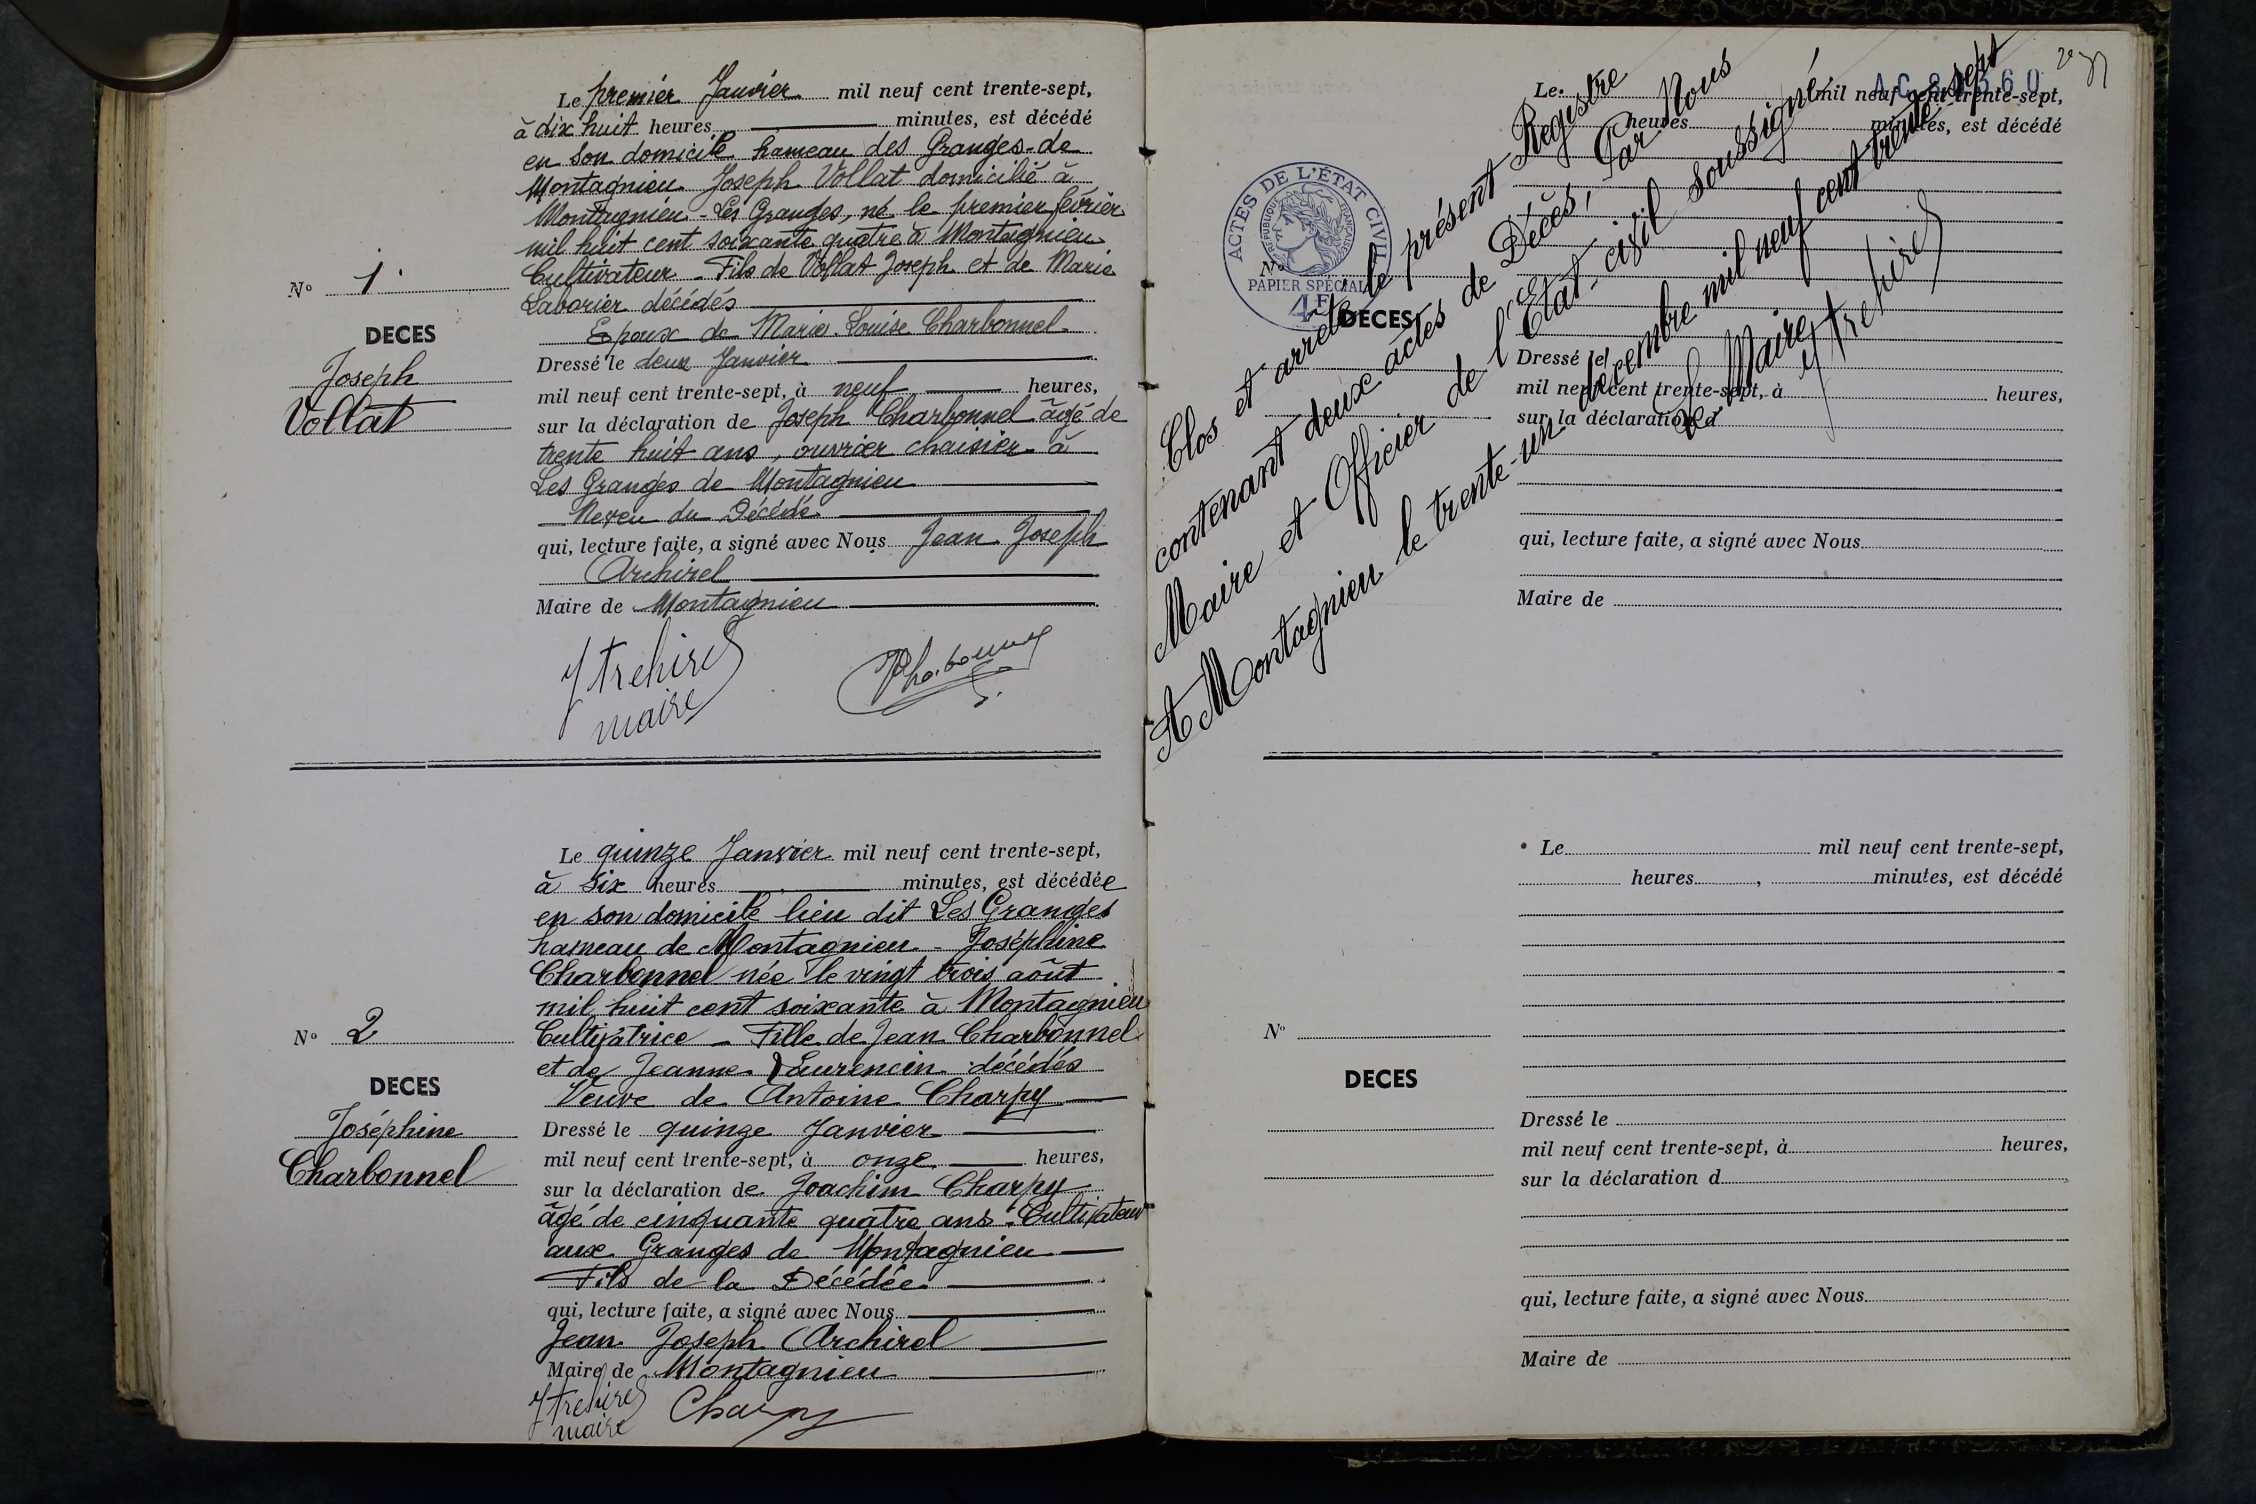 Le premier Janvier mil neuf cent trente-sept,
à dix huit heures minutes, est décédé
en son domicile hameau des Granges de
Montagnieu Joseph Vollat domicilié à
Montagnieu - Les Granges, né le premier février
mil huit cent soixante quatre à Montagnieu
Cultivateur - Fils de Vollat Joseph et de Marie
Laborier décédés
Epoux de Marie Louise Charbonnel
Dressé le deux Janvier
mil neuf cent trente-sept, à neuf heures,
sur la déclaration de Joseph Charbonnel âgé de
trente huit ans, ouvrier chaisier à
Les Granges de Montagnieu
Neveu du Décédé
qui, lecture faite, a signé avec Nous Jean Joseph
Archirel
Maire de Montagnieu
maire
No 1
DECES
Joseph
Vollat
Le quinze Janvier mil neuf cent trente-sept,
à six heures minutes, est décédée
en son domicile lieu dit Les Granges
hameau de Montagnieu - Joséphine
Charbonnel née le vingt trois août
mil huit cent soixante à Montagnieu
Cultivatrice - Fille de Jean Charbonnel
et de Jeanne Laurencin décédés
Veuve de Antoine Charpy
Dressé le quinze Janvier
mil neuf cent trente-sept, à onze heures,
sur la déclaration de Joachim Charpy
âgé de cinquante quatre ans Cultivateur
aux Granges de Montagnieu
Fils de la Décédée
qui, lecture faite, a signé avec Nous
Jean Joseph Archirel
Maire de Montagnieu
maire Charpy
No 2
DECES
Joséphine
Charbonnel
Le mil neuf cent trente-sept,
heures minutes, est décédé
ACTES DE L'ÉTAT CIVIL
RÉPUBLIQUE FRANÇAISE
PAPIER SPÉCIAL
4F
No
DECES
Dressé le
mil neuf cent trente-sept, à heures,
sur la déclaration d
qui, lecture faite, a signé avec Nous
Maire de
Clos et arrêté le présent Registre
contenant deux actes de Décès, Par Nous
Maire et Officier de l'Etat-civil soussigné
A Montagnieu le trente-un décembre mil neuf cent trente-sept
Le Maire
Le mil neuf cent trente-sept,
heures, minutes, est décédé
No
DECES
Dressé le
mil neuf cent trente-sept, à heures,
sur la déclaration d
qui, lecture faite, a signé avec Nous
Maire de